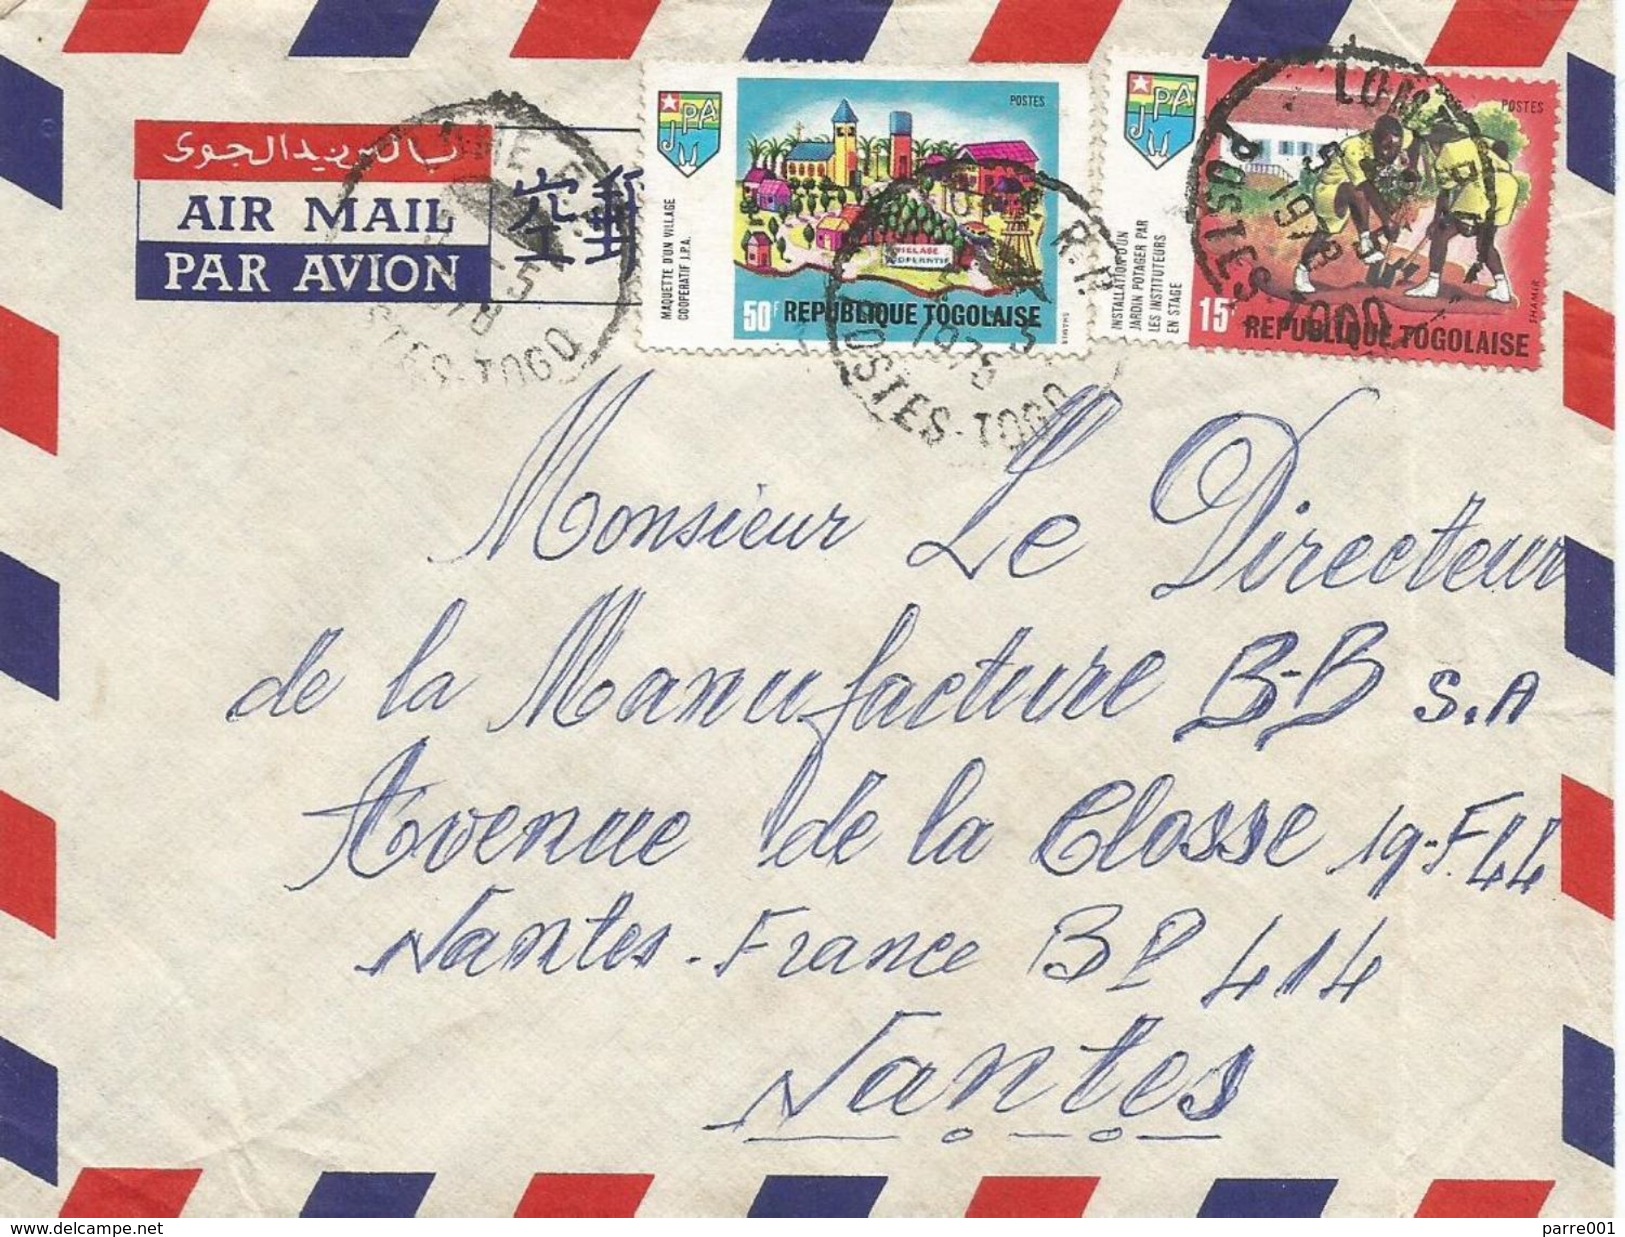 بالبريد الجوى
AIR MAIL
PAR AVION
空郵
JPA
MAQUETTE D'UN VILLAGE
COOPERATIF J.P.A.
POSTES
VILLAGE
COOPERATIF
50F REPUBLIQUE TOGOLAISE
JPA
INSTALLATION D'UN
JARDIN POTAGER PAR
LES INSTITUTEURS
EN STAGE
POSTES
15F REPUBLIQUE TOGOLAISE
SHAMIR
LOME R.P.
5 1978
POSTES-TOGO
Monsieur Le Directeur
de la Manufacture B-B S.A
Avenue de la Closse 19-F44
Nantes-France BP 414
Nantes
www.delcampe.net
parre001